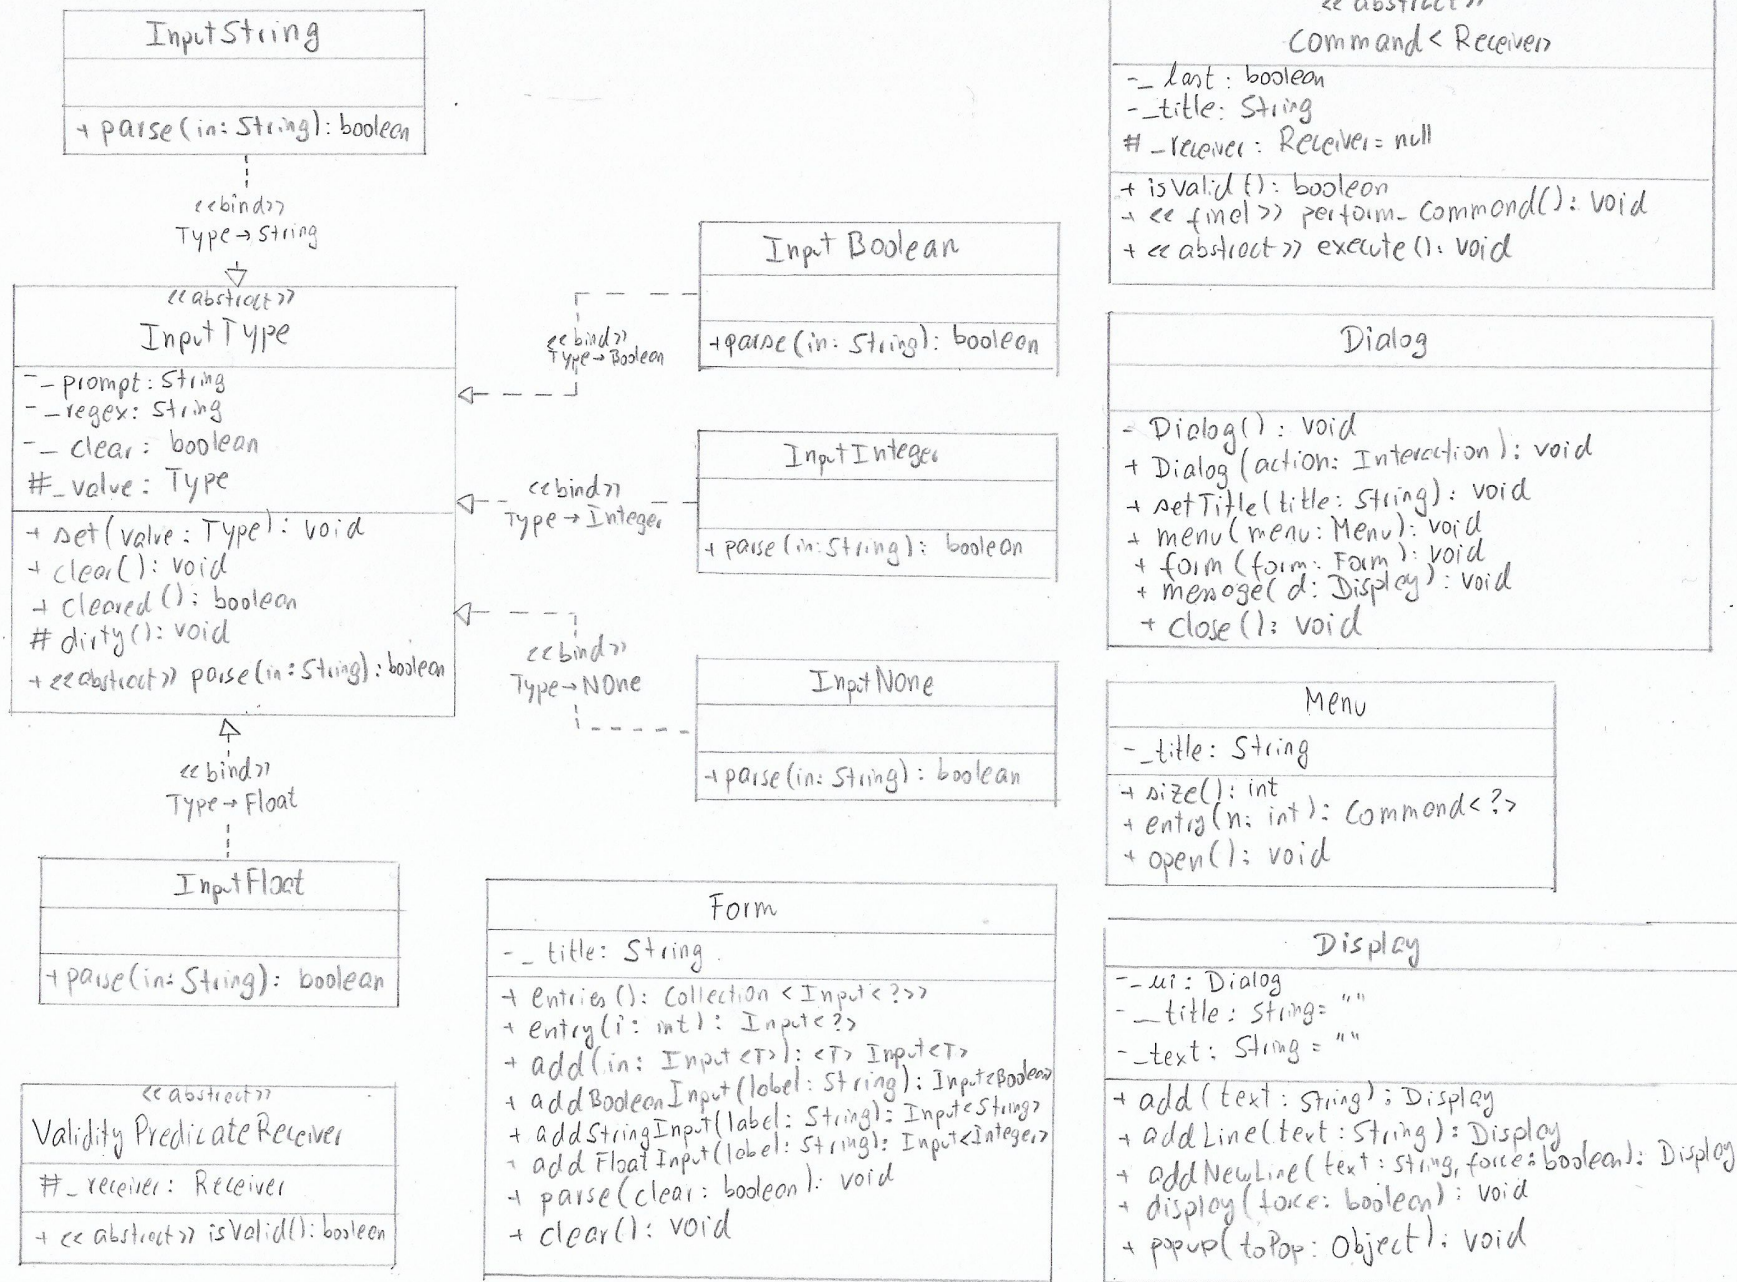 InputString
+ parse(in: String): boolean
<<bind>>
Type→String
<<abstract>>
InputType
-_prompt: String
-_regex: String
-_clear: boolean
#_value: Type
+ set(value: Type): void
+ clear(): void
+ cleared(): boolean
# dirty(): void
+ <<abstract>> parse(in: String): boolean
<<bind>>
Type→Float
InputFloat
+ parse(in: String): boolean
<<abstract>>
ValidityPredicateReceiver
#_receiver: Receiver
+ <<abstract>> isValid(): boolean
InputBoolean
+ parse(in: String): boolean
<<bind>>
Type→Boolean
InputInteger
+ parse(in: String): boolean
<<bind>>
Type→Integer
InputNone
+ parse(in: String): boolean
<<bind>>
Type→NOne
Form
-_title: String
+ entries(): Collection <Input<?>>
+ entry(i: int): Input<?>
+ add(in: Input<T>): <T> Input<T>
+ addBooleanInput(label: String): Input<Boolean>
+ addStringInput(label: String): Input<String>
+ addFloatInput(label: String): Input<Integer>
+ parse(clear: boolean): void
+ clear(): void
<<abstract>>
Command<Receiver>
-_last: boolean
-_title: String
#_receiver: Receiver = null
+ isValid(): boolean
+ <<final>> perform_command(): void
+ <<abstract>> execute(): void
Dialog
- Dialog(): void
+ Dialog(action: Interaction): void
+ setTitle(title: String): void
+ menu(menu: Menu): void
+ form(form: Form): void
+ message(d: Display): void
+ close(): void
Menu
-_title: String
+ size(): int
+ entry(n: int): Command<?>
+ open(): void
Display
-_ui: Dialog
-_title: String = ""
-_text: String = ""
+ add(text: String): Display
+ addLine(text: String): Display
+ addNewLine(text: String, force: boolean): Display
+ display(force: boolean): void
+ popup(toPop: Object): void